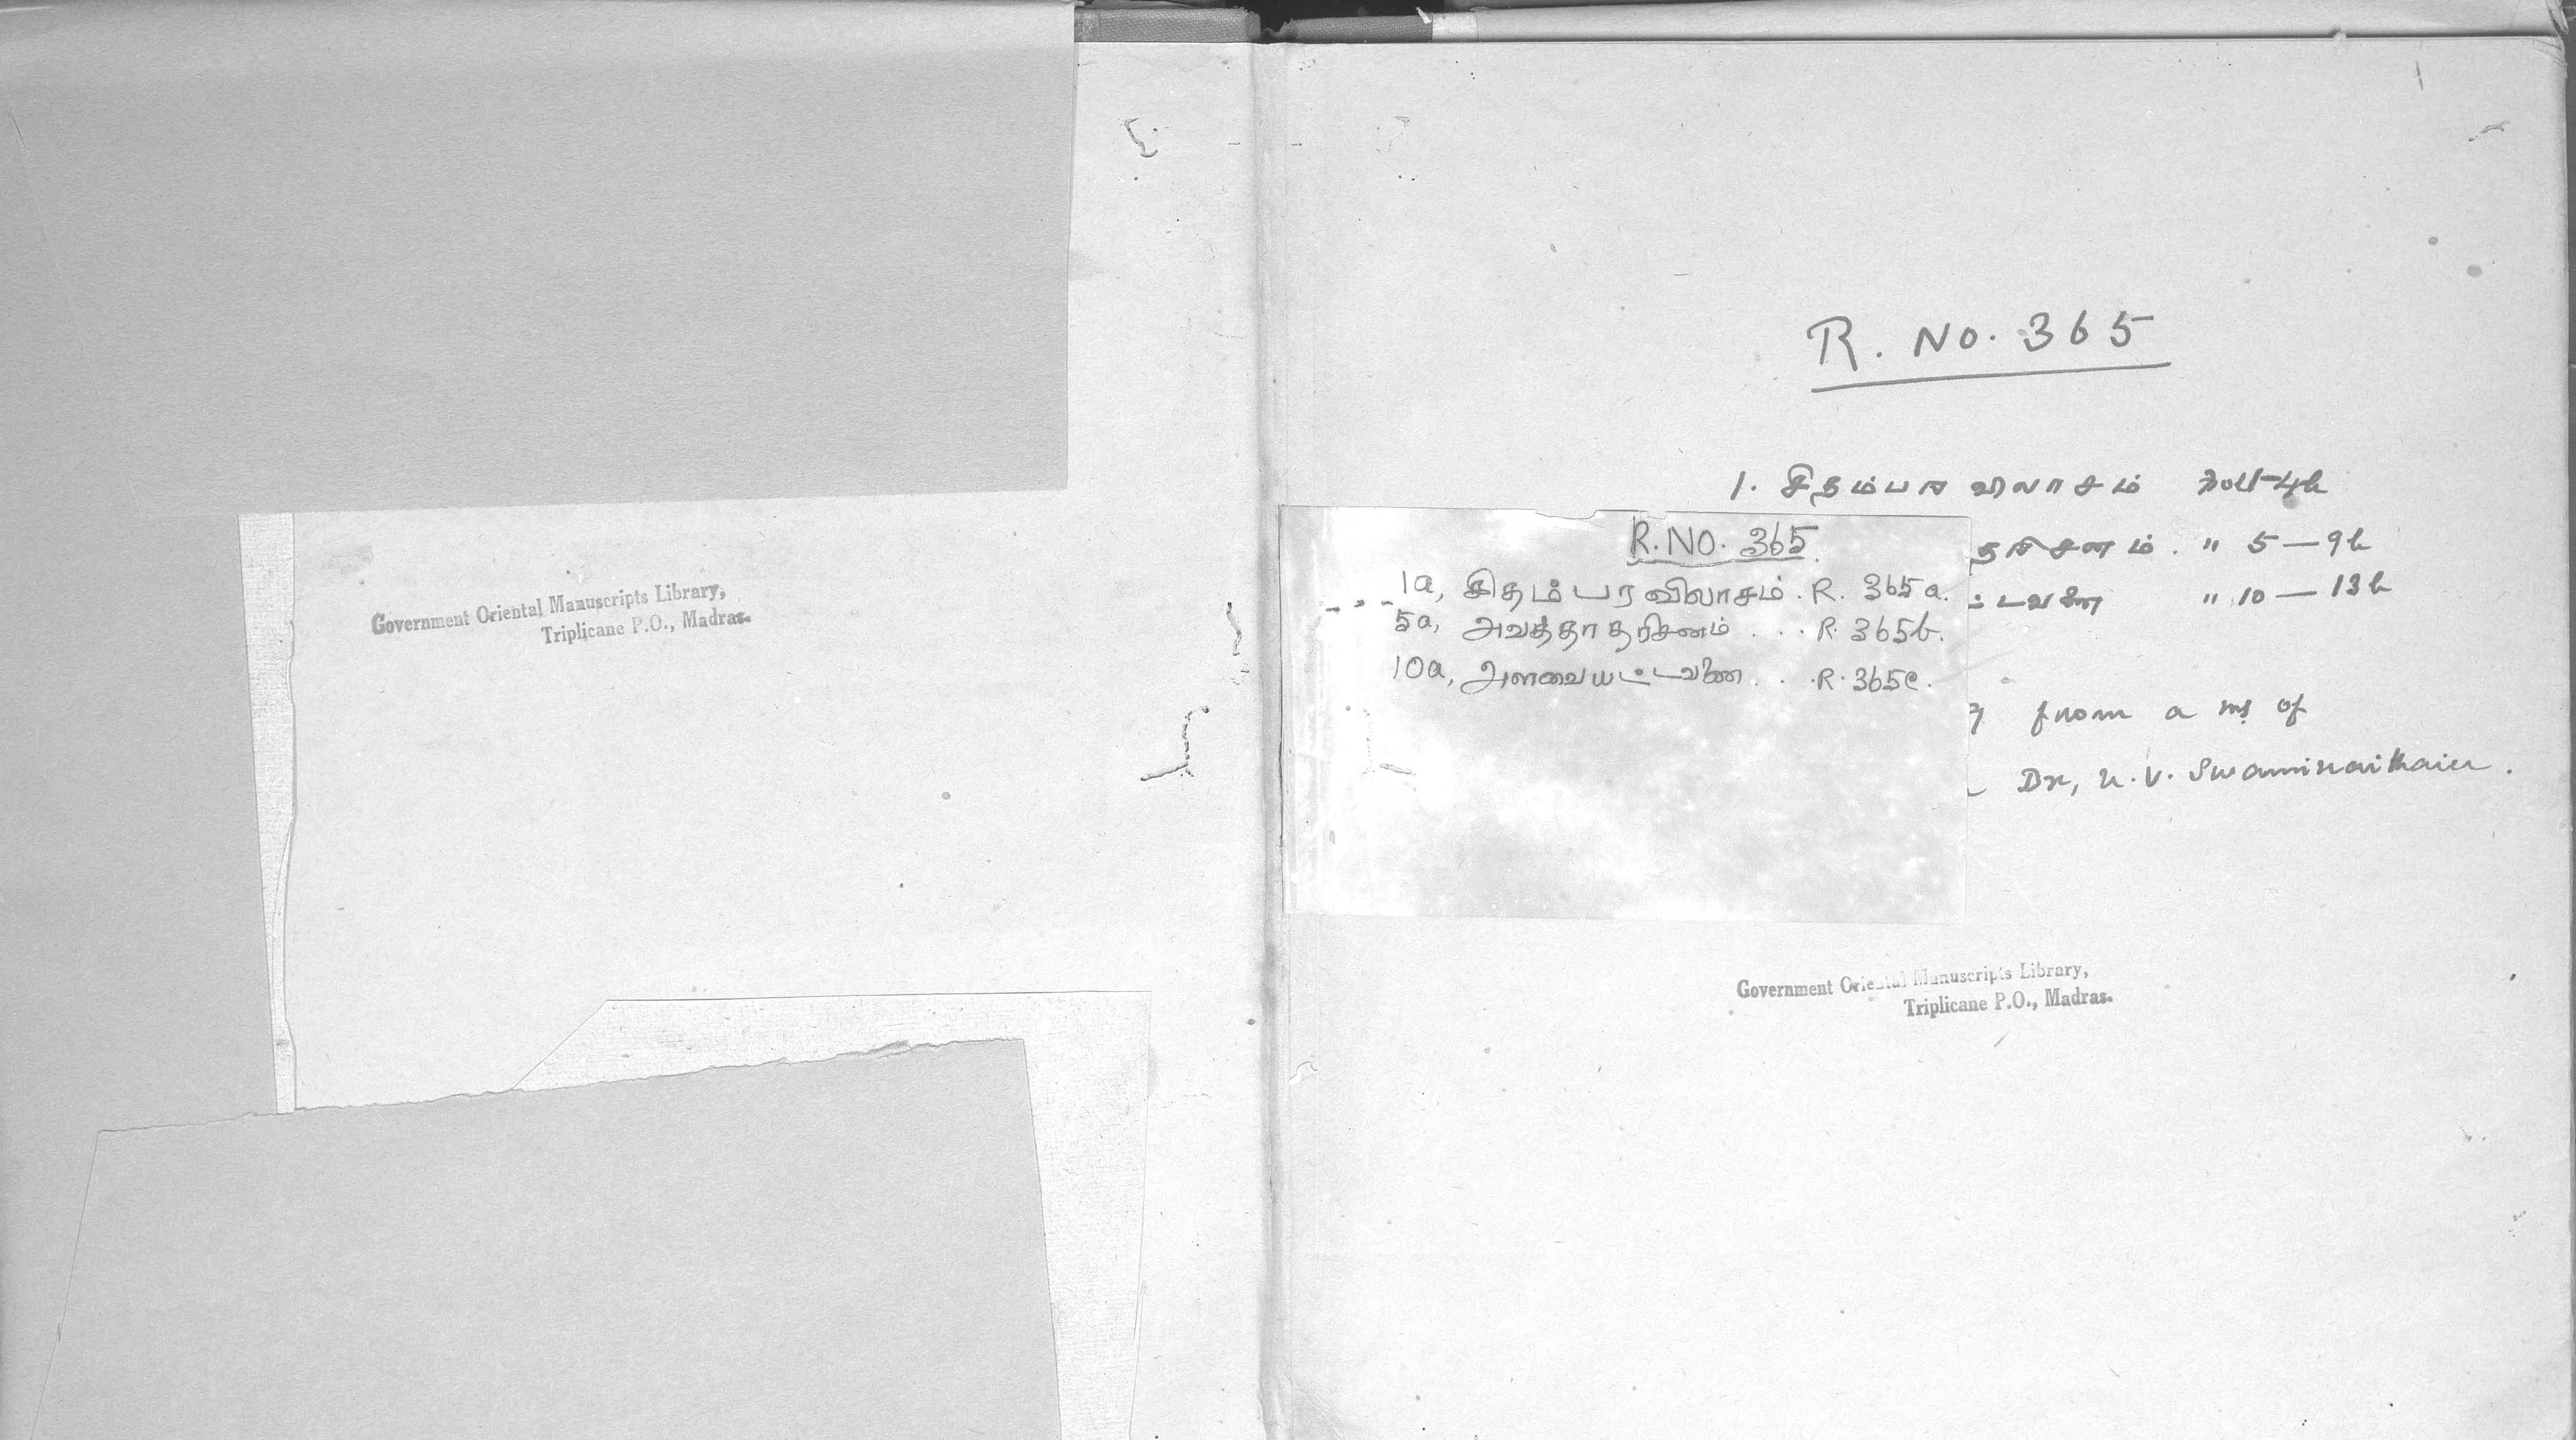 Government Oriental Manuscripts Library,
Triplicane P.O., Madras.
R. NO. 365
1. சிதம்பர விலாசம் Fol 1-4b
தரிசனம். " 5 — 9b
ட்டவணை " 10 — 13b
from a ms of
Dr, U. V. Swaminathaier.
R. NO. 365
1a, சிதம்பரவிலாசம். R. 365a.
5a, அவத்தாதரிசனம் . . . R. 365b.
10a, அளவையட்டவணை . . . R. 365c.
Government Oriental Manuscripts Library,
Triplicane P.O., Madras.